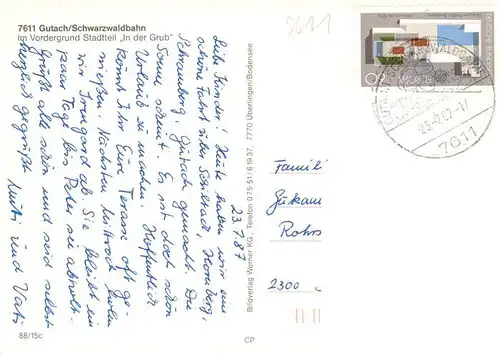 7611 Gutach/Schwarzwaldbahn
im Vordergrund Stadtteil „In der Grub"
7611
23.7.87
Liebe Kinder! Heute haben wir eine
schöne Fahrt über Schiltach, Hornberg,
Schramberg, Gutach gemacht. Die
Sonne scheint. Es ist doch schön
Urlaub zu machen. Hoffentlich
könnt Ihr Eure Terasse oft ge-
nießen. Nächsten Mittwoch holen
wir Irmgard ab. Sie bleibt ein
paar Tage bis Peter sie abholt.
Grüßt alle schön und seid selbst
herzlich gegrüßt
Mutti und Vati
Bildverlag Werner KG, Telefon 0 75 51/6 19 37, 7770 Überlingen/Bodensee
88/15c
CP
Famili
Rohrs
2300
23.-7.87-17
7611